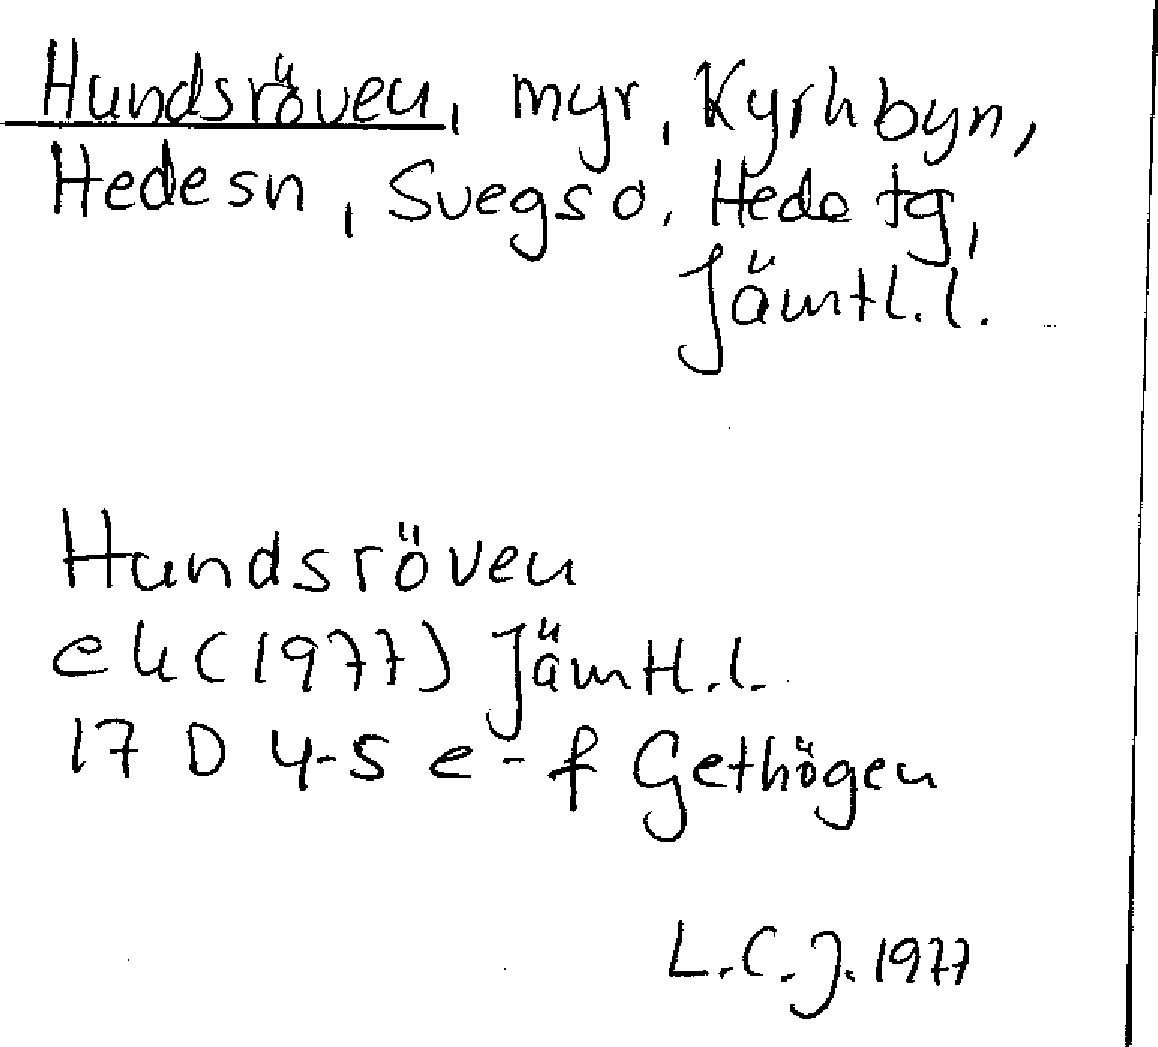 Hundsröven, myr, Kyrhbyn,
Hedesn, Svegs o, Hede tg,
Jämtl.l.
Hundsröven
ek (1977) Jämtl.l.
17 D 4-5 e-f Gethögen
L.C.J. 1977